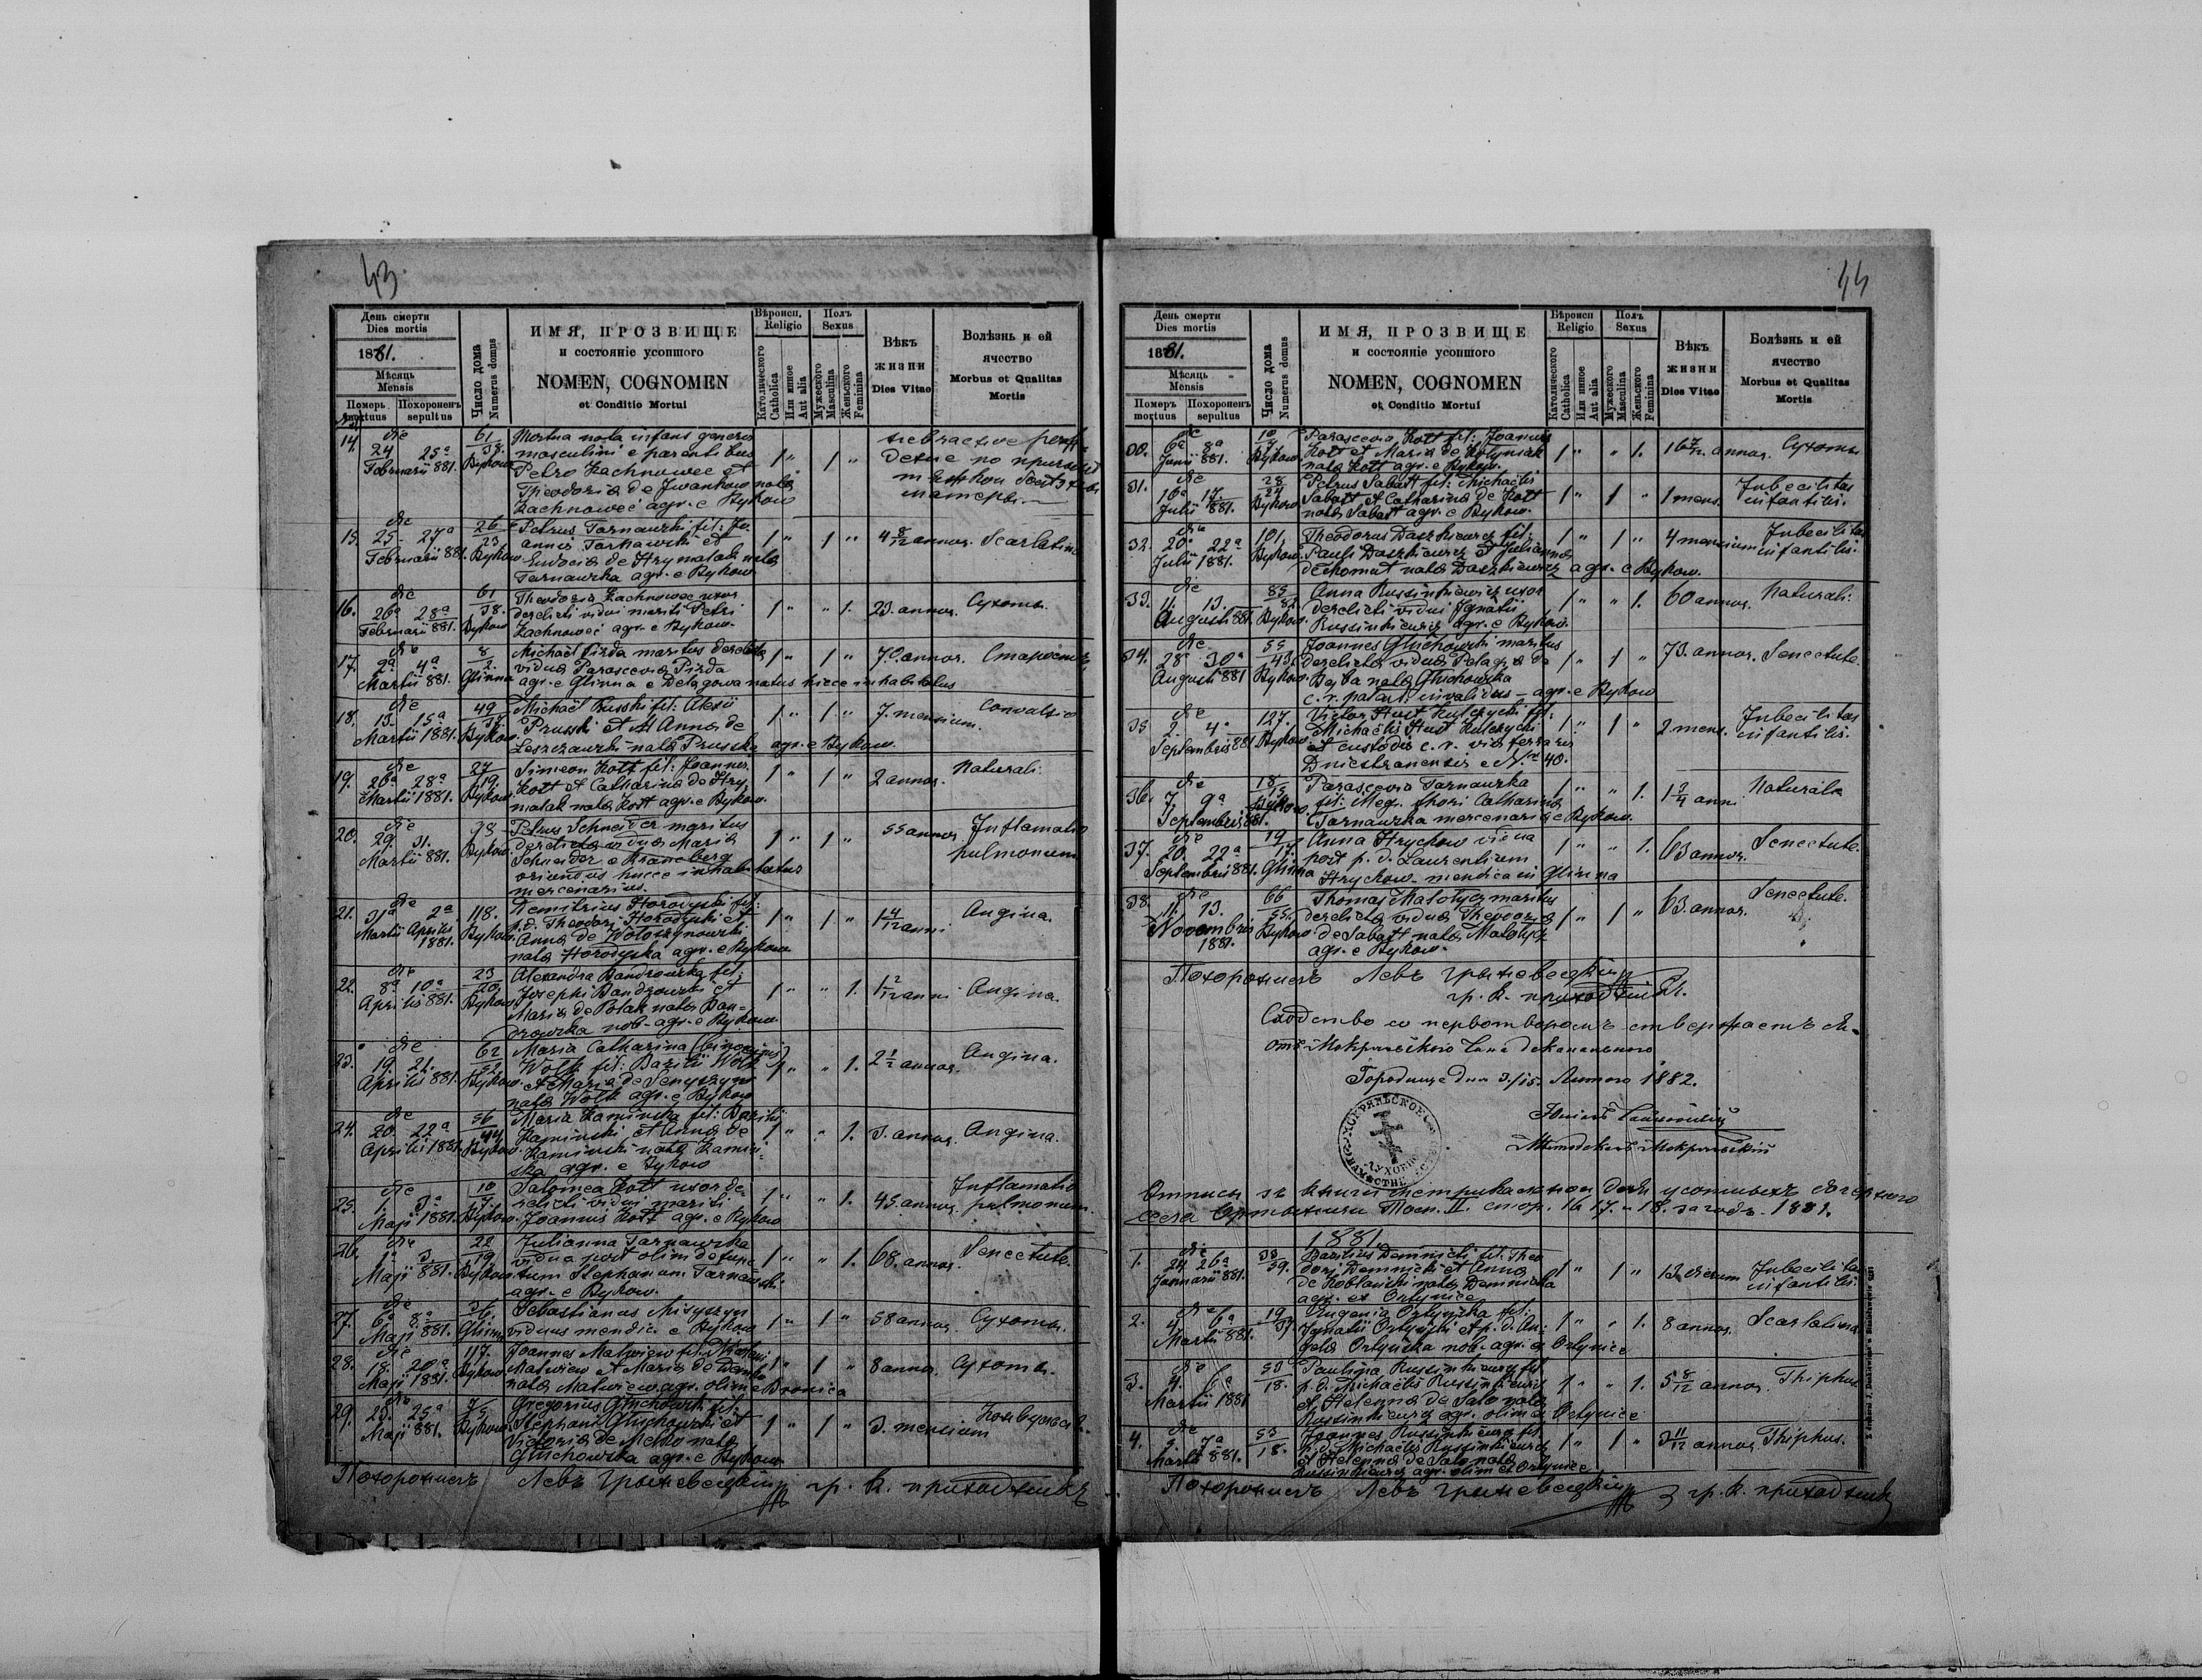 43.
День смерти
Dies mortis
1881.
Мѣсяць
Mensis
Померъ
mortuus
Похороненъ
sepultus
Число дома
Numerus domus
ИМЯ, ПРОЗВИЩЕ
и состояніе усопшого
NOMEN, COGNOMEN
et Conditio Mortui
Вѣроисп.
Religio
Католического
Catholica
Или инное
Aut alia
Полъ
Sexus
Мужеского
Masculina
Женьского
Feminina
Вѣкъ
жизни
Dies Vitae
Болѣзнь и ей
ячество
Morbus et Qualitas
Mortis
14. die 24 25a Februarii 881. 61/38. Bykow
Mortua nata infans generis
masculini e parentibus
Petro Zachnowec et
Theodosia de Iwankow nata
Zachnowec agr. e Bykow
1 " 1 "
15. die 25. 27a Februarii 881. 26/23 Bykow
Petrus Tarnawski fil: Jo-
annis Tarnawski et
Eudocia de Hrymalak nata
Tarnawska agr. e Bykow
1 " 1 " 4 8/12 annor. Scarlatina
16. die 26a 28a Februarii 881. 61/38. Bykow
Theodosia Zachnowec uxor
derelicti vidui mariti Petri
Zachnowec agr. e Bykow.
1 " " 1. 23. annor. Сухоты.
17. die 2a 4a Martii 881. 8/2. Glinna
Michael Pizda maritus derelicta
vidua Parascevia Pizda
agr. e Glinna e Delagowa natus hicce inhabitatus
1 " 1 " 70. annor.
18. die 13. 15a Martii 1881. 49/37. Bykow
Michaël Prusski fil: Alexii
Prusski et Anna de
Leszczawski nata Prusska agr. e Bykow.
1 " 1 " 7. mensium. Convulsio
19. die 26a 28a Martii 1881. 27/19. Bykow
Simeon Kott fil: Joannis
Kott et Catharina de Hry-
malak nata Kott agr. e Bykow.
1 " 1 " 2 annor. Naturali.
20. die 29. 31. Martii 881. 98 Bykow.
Petrus Schneider maritus
derelicta vidua Maria
Schneider e Kraneberg
oriundus hucce inhabitatus
mercenarius.
1 " 1 " 55 annor. Inflamatio
pulmonum
21. die 31a 2a Martii Aprilis 1881. 118. Bykow.
Demitrius Horodyski fil:
p. d. Theodori Horodyski et
Anna de Wołoszynowski
nata Horodyska agr. e Bykow
1 " 1 " 1 4/12 anni Angina.
22. die 8a 10a Aprilis 881. 23/20 Bykow
Alexandra Bandrowska fil:
Josephi Bandrowski et
Maria de Polak nata Ban-
drowska nob. agr. e Bykow
1 " " 1. 1 2/12 anni Angina.
23. die 19. 21. Aprilis 881. 62/52 Bykow.
Maria Catharina (binomini)
Wołk fil: Bazilii Wołk
et Maria de Senyszyn
nata Wołk agr. e Bykow
1 " " 1. 2 1/2 annor. Angina.
24. die 20. 22a Aprilis 1881. 56/44 Bykow.
Maria Kaminska fil: Bazilii
Kaminski et Anna de
Kaminski nata Kamin-
ska agr. e Bykow
1 " " 1. 3. annor. Angina.
25. die 1. 3a Maji 1881. 10/7. Bykow.
Salomea Kott uxor de-
relicti vidui mariti
Joannis Kott agr. e Bykow
1 " " 1. 45. annor. Inflamatio
pulmonum.
26. die 1a 3 Maji 881. 22/19 Bykow
Julianna Tarnawska
vidua post olim defunc-
tum Stephanum Tarnawski.
agr. e Bykow.
1 " " 1. 68. annor. Senectute.
27. die 6a 8a Maji 881. 36/ Glinna
Sebastianus Misyszyn
viduus mendic. e Bykow
1 " 1 " 58 annor. Сухоты.
28. die 18. 20a Maji 1881. 117. Bykow
Joannes Matwiew fil.
Matwiew et Maria de
nata Matwiew. agr. olim e Bronica
1 " 1 " 8 annor. Сухоты.
29. die 23. 25a Maji 881. Bykow.
Gregorius Głuchowski fil:
Stephani Głuchowski et
Victoria de Melko nata
Głuchowska agr. e Bykow.
1 " 1 " 3. mensium
Похоронилъ Левъ гр. к. приходникъ
44
День смерти
Dies mortis
1881.
Мѣсяць
Mensis
Померъ
mortuus
Похороненъ
sepultus
Число дома
Numerus domus
ИМЯ, ПРОЗВИЩЕ
и состояніе усопшого
NOMEN, COGNOMEN
et Conditio Mortui
Вѣроисп
Religio
Католического
Catholica
Или инное
Aut alia
Полъ
Sexus
Мужеского
Masculina
Женьского
Feminina
Вѣкъ
жизни
Dies Vitae
Болѣзнь и ей
ячество
Morbus et Qualitas
Mortis
30. die 6a 8a Junii 881. 10/7. Bykow
Parascevia Kott fil: Joannis
Kott et Maria de Hołyniak
nata Kott agr. e Bykow.
1 " " 1. 16 7/12. annor. Сухоты
31. die 16a 17. Julii 1881. 28/24 Bykow
Petrus Sabatt fil: Michaëlis
Sabatt et Catharina de Kott
nata Sabatt agr. e Bykow.
1 " 1 " 1 mens. Imbecilitas
infantilis.
32. die 20a 22a Julii 1881. 101. Bykow.
Theodorus Daszkiewicz fil:
Pauli Daszkiewicz et Julianna
de Chomut nata Daszkiewicz agr. e Bykow.
1 " 1 " 4 mensium Imbecilitas
infantilis.
33. die 11. 13. Augusti 881. 85/82. Bykow.
Anna Russinkiewicz uxor
derelicti vidui Ignatii
Russinkiewicz agr. e Bykow.
1 " " 1. 60 annor. Naturali.
34. die 28a 30a Augusti 881 55/43. Bykow.
Joannes Głuchowski maritus
derelicta vidua Pelagia de
Baba nata Głuchowska
c. r. patent. invalidus - agr. e Bykow
1 " 1 " 73. annor. Senectute.
35 die 2. 4a Septembris 881 127. Bykow.
Victor Hust Kulczycki fil:
Michaëlis Hust Kulczycki
et custodis c. r. via ferrarei
Dniestranensis e Nro 40.
1 " 1 " 2 mens. Imbecilitas
infantilis.
36. die 7. 9a Septembris 881. 18/15 Bykow
Parascevia Tarnawska
fil: illeg. thori Catharina
Tarnawska mercenaria e Bykow.
1 " " 1. 1 3/4 anni Naturala
37. die 20. 22a Septembris 881. 19/17. Glinna
Anna Hrychow vidua
post p. d. Laurentium
Hrychow - mendica in Glinna
1 " " 1. 63 annor. Senectute.
38. die 11. 13. Novembris 1881. 66/55. Bykow
Thomas Małołycz maritus
derelicta vidua Theodosia
de Sabatt nata Małołycz
agr. e Bykow.
1 " 1 " 63. annor. Senectute.
Похоронилъ Левъ
гр. к. приходникъ
Сходство со первотворомъ ствержаетъ ся
отъ Мокрянского деканального
Городище дня 3./15. Лютого 1882.
Мокрянскій
1881.
1. die 24. 26a Januarii 881. 33/39.
Basilius Demnicki fil: Theo-
dori Demnicki et Anna
de Koblański nata Demnicka
agr. ex Ortynice
1 " 1 " 13 dierum Imbecilitas
infantilis.
2. die 4. 6a Martii 881. 19/37
Eugenia Ortyńska fil:
Ignatii Ortyński et p. d. An-
gela Ortyńska nob. agr. e Ortynice
1 " " 1. 8 annor. Scarlatina
3. die 4. 6a Martii 1881 53/18.
Paulina Russinkiewicz fil:
p. d. Michaëlis Russinkiewicz
et Helenna de Sało nata
Russinkiewicz agr. olim e Ortynice
1 " " 1. 5 8/12 annor. Thiphus
4. die 5. 7a Martii 881. 53/18.
Joannes Russinkiewicz fil:
p. d. Michaëlis Russinkiewicz
et Helenna de Sało nata
Russinkiewicz agr. olim e Ortynice
1 " 1 " 3 11/12 annor. Thiphus.
Похоронилъ Левъ гр. к. приходникъ